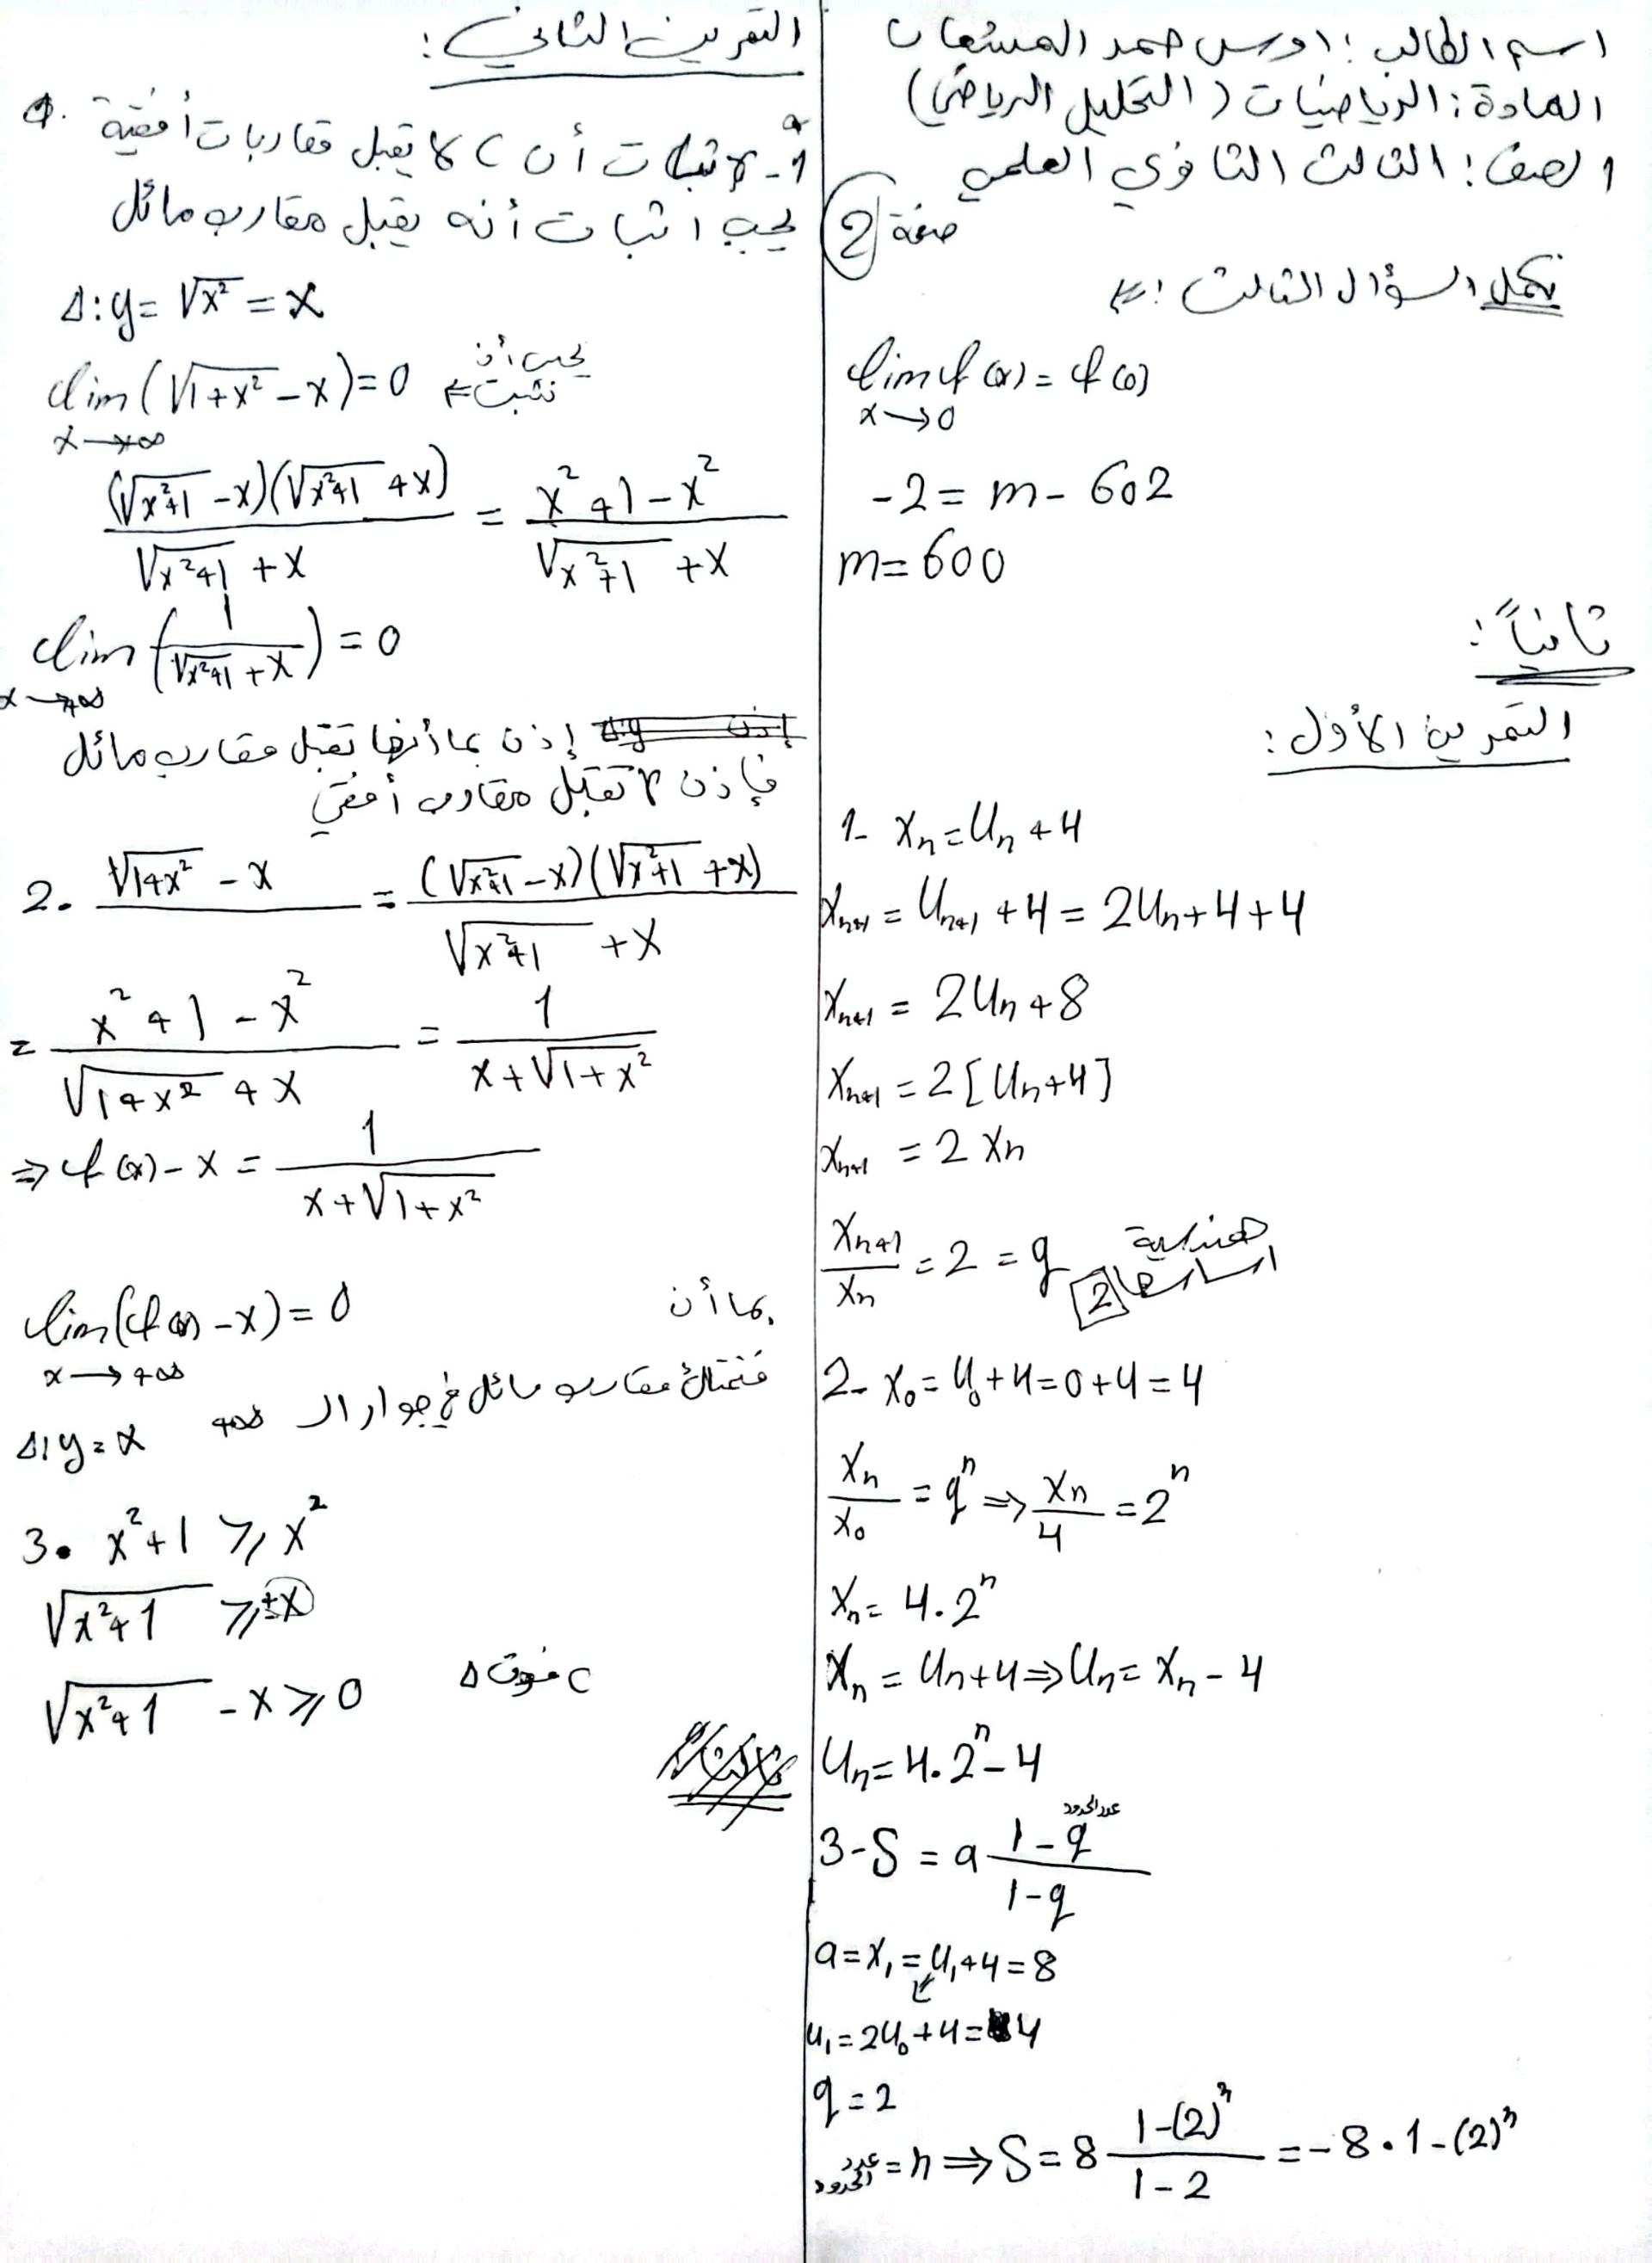 اسم الطالب: اوس حمد المشعان
المادة: الرياضيات (التحليل الرياضي)
الصف: الثالث الثانوي العلمي
صفحة 2
نكمل السؤال الثالث:
lim f(x) = f(0)
x→0
-2 = m - 602
m = 600
ثانياً:
التمرين الأول:
1- xₙ = Uₙ + 4
xₙ₊₁ = Uₙ₊₁ + 4 = 2Uₙ + 4 + 4
xₙ₊₁ = 2Uₙ + 8
xₙ₊₁ = 2[Uₙ + 4]
xₙ₊₁ = 2xₙ
xₙ₊₁/xₙ = 2 = q هندسية
اساسها 2
2- x₀ = U₀ + 4 = 0 + 4 = 4
xₙ/x₀ = qⁿ ⇒ xₙ/4 = 2ⁿ
xₙ = 4.2ⁿ
xₙ = Uₙ + 4 ⇒ Uₙ = xₙ - 4
Uₙ = 4.2ⁿ - 4
3- S = a (1 - q^عدد الحدود)/(1 - q)
a = x₁ = U₁ + 4 = 8
U₁ = 2U₀ + 4 = 4
q = 2
عدد الحدود = n ⇒ S = 8 (1 - (2)ⁿ)/(1 - 2) = -8 . 1 - (2)ⁿ
التمرين الثاني:
1- لاثبات أن C لا يقبل مقاربات أفقية
يجب اثبات أنه يقبل مقارب مائل
Δ: y = √x² = x
lim (√(1+x²) - x) = 0 يجب أن نثبت
x→+∞
(√(x²+1) - x)(√(x²+1) + x)/(√(x²+1) + x) = (x² + 1 - x²)/(√(x²+1) + x)
lim (1/(√(x²+1) + x)) = 0
x→+∞
إذن بما أنها تقبل مقارب مائل
فإذن لا تقبل مقارب أفقي
2. √(1+x²) - x = (√(x²+1) - x)(√(x²+1) + x)/(√(x²+1) + x)
= (x² + 1 - x²)/(√(1+x²) + x) = 1/(x + √(1+x²))
⇒ f(x) - x = 1/(x + √(1+x²))
بما أن lim (f(x) - x) = 0
x→+∞
فتمتلك مقارب مائل في جوار الـ +∞
Δ: y = x
3. x² + 1 ≥ x²
√(x²+1) ≥ ±x
√(x²+1) - x ≥ 0 C فوق Δ